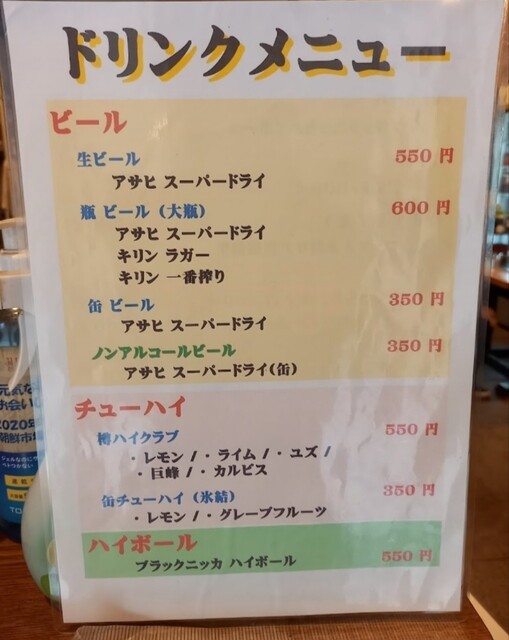 ドリンクメニュー
ビール
生ビール 550 円
アサヒ スーパードライ
瓶 ビール (大瓶) 600 円
アサヒ スーパードライ
キリン ラガー
キリン 一番搾り
缶 ビール 350 円
アサヒ スーパードライ
ノンアルコールビール 350 円
アサヒ スーパードライ(缶)
チューハイ
樽ハイクラブ 550 円
・レモン /・ライム /・ユズ /
・巨峰 /・カルピス
缶チューハイ (氷結) 350 円
・レモン /・グレープフルーツ
ハイボール
ブラックニッカ ハイボール 550 円
元気な
お会い
2020年
朝鮮市場